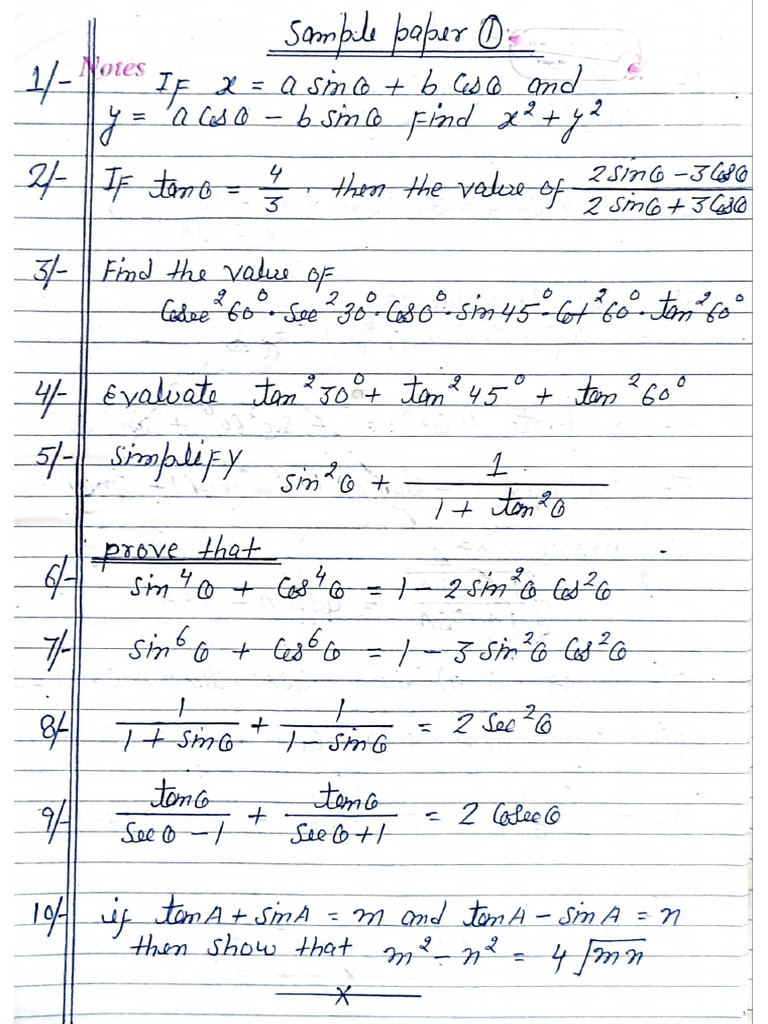 Sample paper ①
Notes
1/- If x = a sinθ + b cosθ and
y = a cosθ - b sinθ find x² + y²
2/- If tanθ = 4/3, then the value of (2 sinθ - 3 cosθ)/(2 sinθ + 3 cosθ)
3/- Find the value of
Cosec²60°. Sec²30°. Cos0°. Sin45°. Cot²60°. tan²60°
4/- Evaluate tan²30° + tan²45° + tan²60°
5/- Simplify sin²θ + 1/(1 + tan²θ)
prove that
6/- sin⁴θ + cos⁴θ = 1 - 2 sin²θ cos²θ
7/- sin⁶θ + cos⁶θ = 1 - 3 sin²θ cos²θ
8/- 1/(1 + sinθ) + 1/(1 - sinθ) = 2 sec²θ
9/- tanθ/(secθ - 1) + tanθ/(secθ + 1) = 2 cosecθ
10/- if tanA + sinA = m and tanA - sinA = n
then show that m² - n² = 4√mn
x